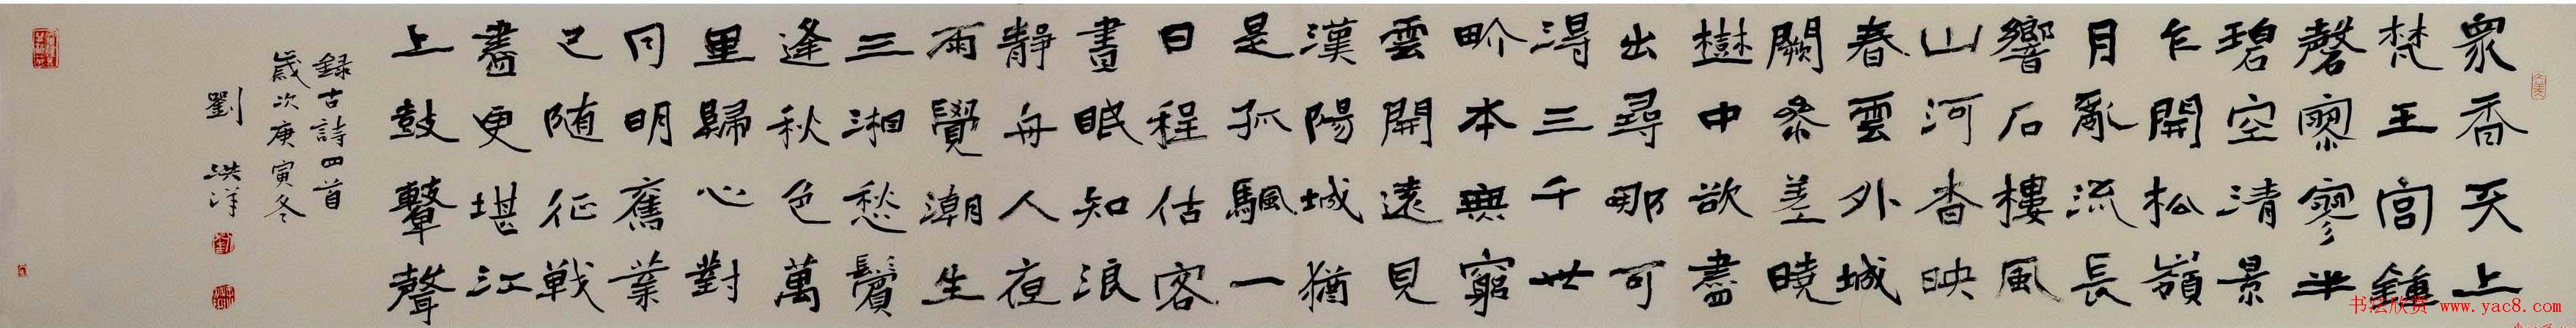 眾香天上
梵王宫鐘
磬寥寥半
碧空清景
乍開松嶺
月亂流長
響石樓風
山河杳映
春雲外城
闕參差曉
樹中欲盡
出尋那可
淂三千世
畍本無窮
雲開遠見
漢陽城猶
是孤颿一
日程估客
晝眠知浪
靜舟人夜
雨覺潮生
三湘愁鬢
逢秋色萬
里歸心對
月明舊業
已随征戰
盡更堪江
上鼓鼙聲
録古詩四首
歲次庚寅冬
劉洪洋
书法欣赏 www.yac8.com